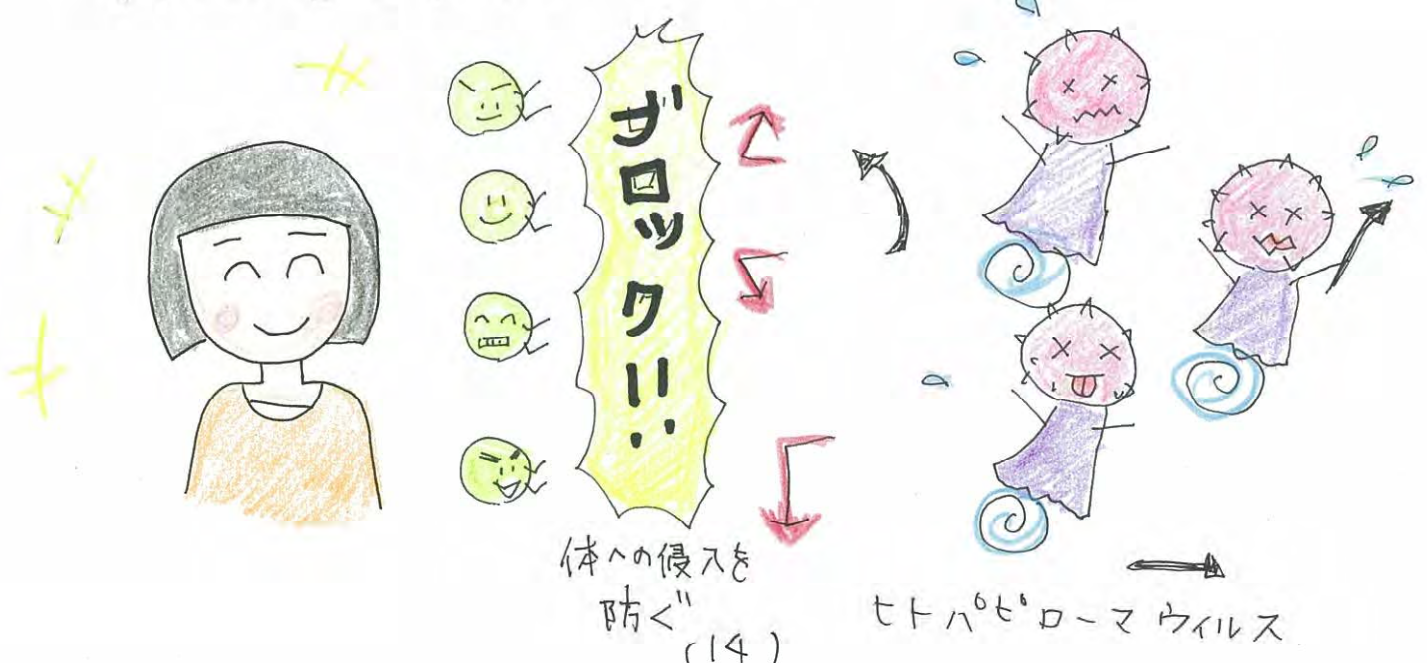 ブロック!!
体への侵入を
防ぐ
(14)
ヒトパピローマウィルス